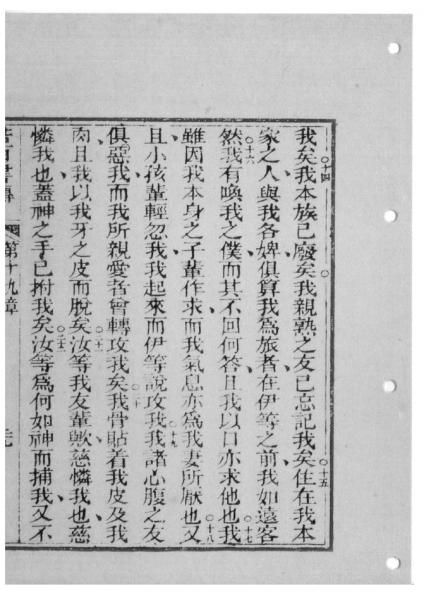 我矣○十四我本族已廢矣我親熟之友已忘記我矣○十五住在我本
家之人與我各婢俱算我爲旅者在伊等之前我如遠客
然○十六我有喚我之僕而其不回何答且我以口亦求他也○十七我
雖因我本身之子輩作求而我氣息亦爲我妻所厭也○十八又
且小孩輩輕忽我我起來而伊等說攻我○十九我諸心腹之友
俱惡我而我所親愛者曾轉攻我矣○二十我骨貼着我皮及我
肉且我以我牙之皮而脫矣○二十一汝等我友輩歟慈憐我也慈
憐我也蓋神之手已拊我矣○二十二汝等爲何如神而捕我又不
若百書傳 第十九章